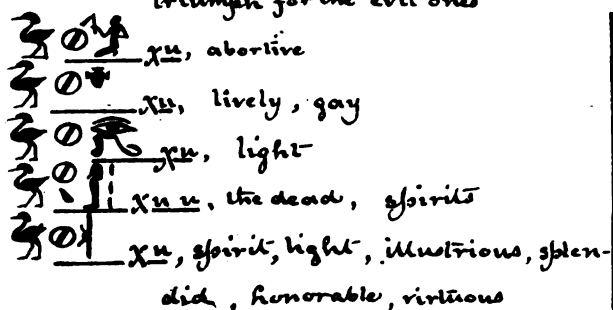 triumph for the evil ones
χu, abortive
χu, lively, gay
χu, light
χuu, the dead, spirits
χu, spirit, light, illustrious, splen-
did, honorable, virtuous